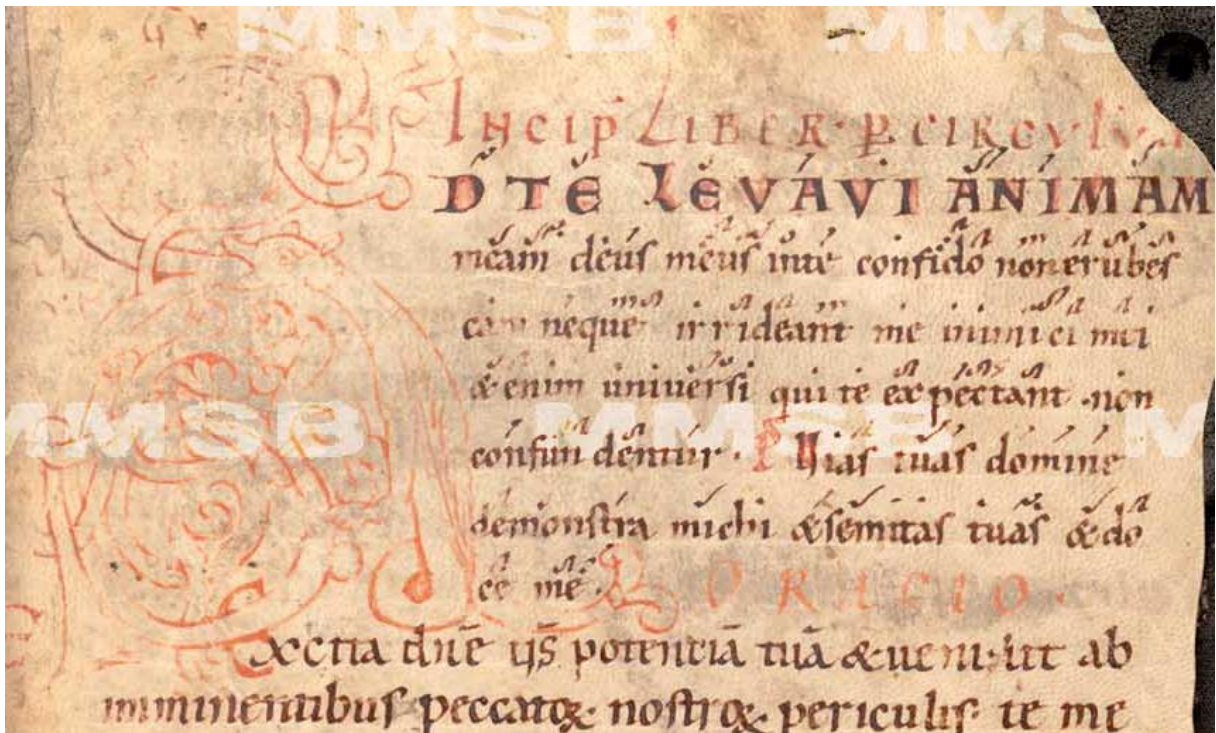 MMSB MMSB
Incip Liber p circulum
D TE LEVAVI ANIMAM
meam deus meus inte confido non erubes
cam neque irrideant me inimici mei
& enim universi qui te expectant non
confundentur. P Uias tuas domine
demonstra michi & semitas tuas & do
ce me. ORACIO.
MMSB MMSB M
Excita dnē qs potentiā tuā & veni ut ab
imminentibus peccatoꝝ nostroꝝ periculis te me